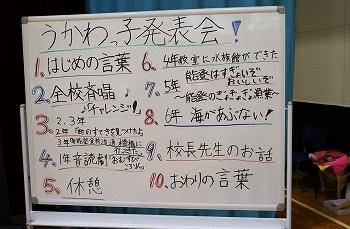 うかわっ子発表会!
1. はじめの言葉
2. 全校斉唱♪
「チャレンジ!」
3. 2.3年
2年「町のすてきを見つけたよ
3年
4. 1年音読劇「おむすび
ころりん」
5. 休憩
6. 4年教室に水族館ができた
7. 5年 能登はすごいぞ
おいしいぞ
～能登のぎょぎょぎょ漁業～
8. 6年 海があぶない!
9. 校長先生のお話
10. おわりの言葉